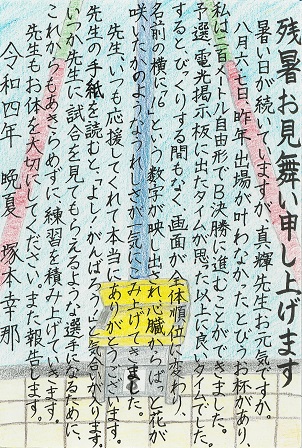 残暑お見舞い申し上げます
暑い日が続いていますが、真輝先生お元気ですか。
八月六・七日、昨年出場が叶わなかったとびうお杯があり、
私は二百メートル自由形でB決勝に進むことができました。
予選、電光掲示板に出たタイムが思った以上に良いタイムでした。
するとびっくりする間もなく、画面が全体順位に変わり、
名前の横に「16」という数字が映し出され心臓からぱっと花が
咲いたかのようなうれしさが一気にこみ上げてきました。
先生、いつも応援してくれて本当にありがとうございます。
先生の手紙を読むと、「よし、がんばろう」と気合が入ります。
いつか先生に試合を見てもらえるような選手になるために、
これからもあきらめずに、練習を積み上げていきます。
先生もお体を大切にしてください。また報告します。
令和四年 晩夏 塚本幸那